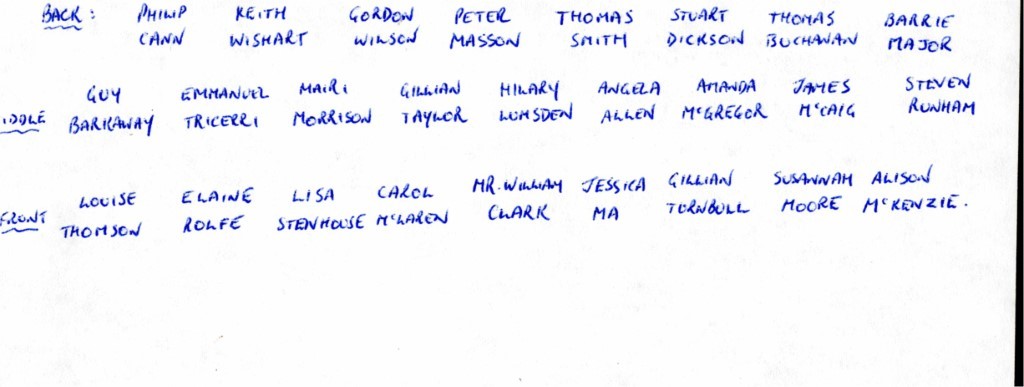 BACK: PHILIP KEITH GORDON PETER THOMAS STUART THOMAS BARRIE
CANN WISHART WILSON MASSON SMITH DICKSON BUCHANAN MAJOR
GUY EMMANUEL MAIRI GILLIAN HILARY ANGELA AMANDA JAMES STEVEN
IDDLE BARRAWAY TRICERRI MORRISON TAYLOR LUMSDEN ALLEN McGREGOR McCAIG RUNHAM
LOUISE ELAINE LISA CAROL MR. WILLIAM JESSICA GILLIAN SUSANNAH ALISON
FRONT THOMSON ROLFE STENHOUSE McLAREN CLARK MA TURNBULL MOORE McKENZIE.